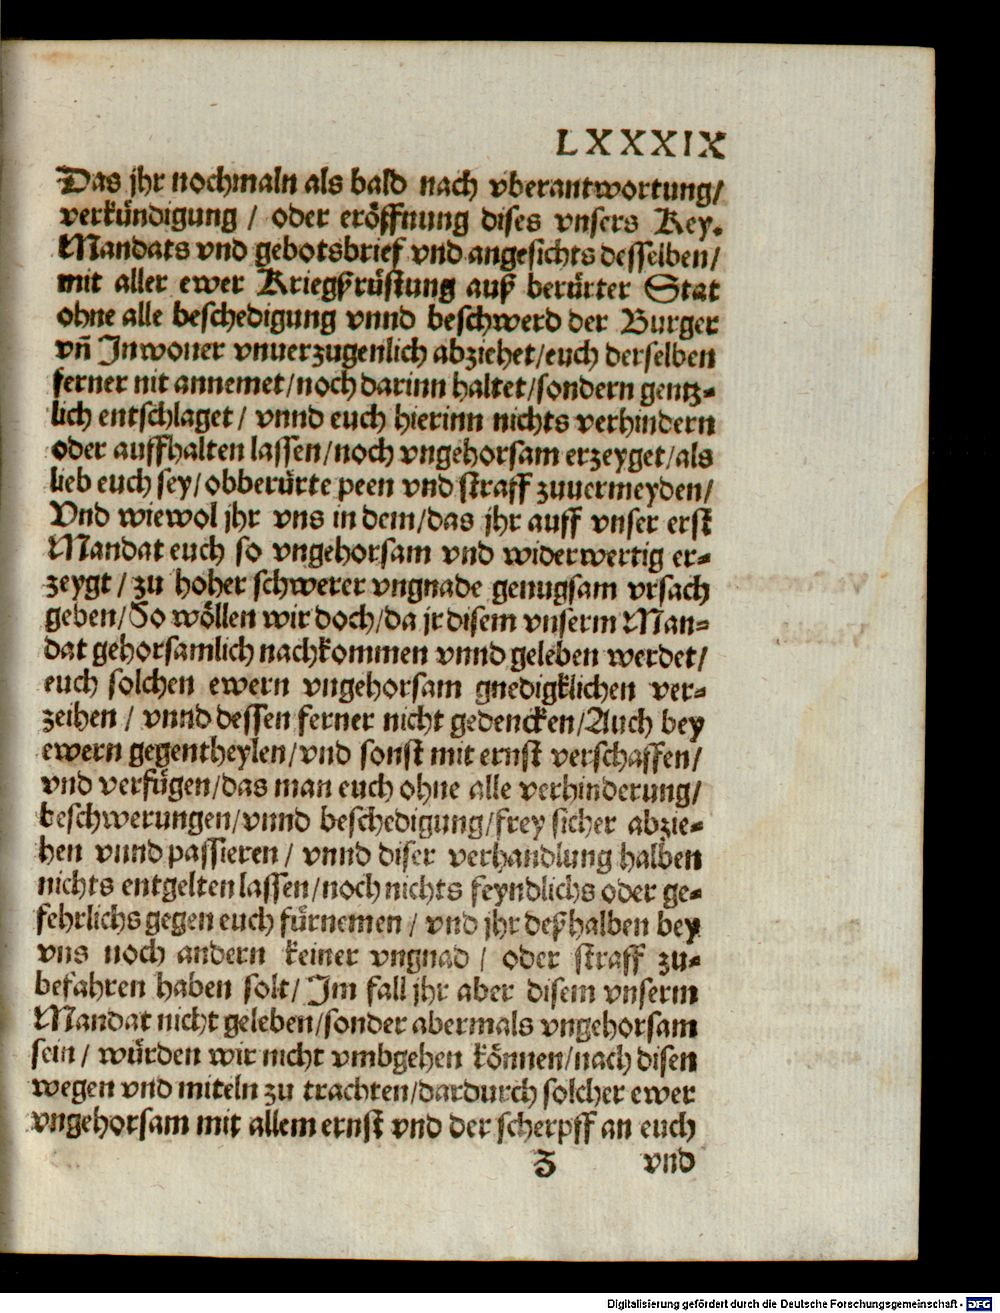 LXXXIX
Das jhr nochmaln als bald nach vberantwortung/
verkündigung / oder eröffnung dises vnsers Key.
Mandats vnd gebotsbrief vnd angesichts desselben/
mit aller ewer Kriegßrüstung auß berürter Stat
ohne alle beschedigung vnnd beschwerd der Burger
vñ Inwoner vnuerzugenlich abziehet/euch derselben
ferner nit annemet/noch darinn haltet/sondern gentz-
lich entschlaget / vnnd euch hierinn nichts verhindern
oder auffhalten lassen/noch vngehorsam erzeyget/als
lieb euch sey/obberürte peen vnd straff zuuermeyden/
Vnd wiewol jhr vns in dem/das jhr auff vnser erst
Mandat euch so vngehorsam vnd widerwertig er-
zeygt / zu hoher schwerer vngnade genugsam vrsach
geben/So wöllen wir doch/da jr disem vnserm Man-
dat gehorsamlich nachkommen vnnd geleben werdet/
euch solchen ewern vngehorsam gnedigklichen ver-
zeihen / vnnd dessen ferner nicht gedencken/Auch bey
ewern gegentheylen/vnd sonst mit ernst verschaffen/
vnd verfügen/das man euch ohne alle verhinderung/
beschwerungen/vnnd beschedigung/frey sicher abzie-
hen vnnd passieren / vnnd diser verhandlung halben
nichts entgelten lassen/noch nichts feyndlichs oder ge-
fehrlichs gegen euch fürnemen / vnd jhr deßhalben bey
vns noch andern keiner vngnad / oder straff zu-
befahren haben solt/ Im fall jhr aber disem vnserm
Mandat nicht geleben/sonder abermals vngehorsam
sein / würden wir nicht vmbgehen können/nach disen
wegen vnd miteln zu trachten/dardurch solcher ewer
vngehorsam mit allem ernst vnd der scherpff an euch
Z vnd
Digitalisierung gefördert durch die Deutsche Forschungsgemeinschaft - DFG